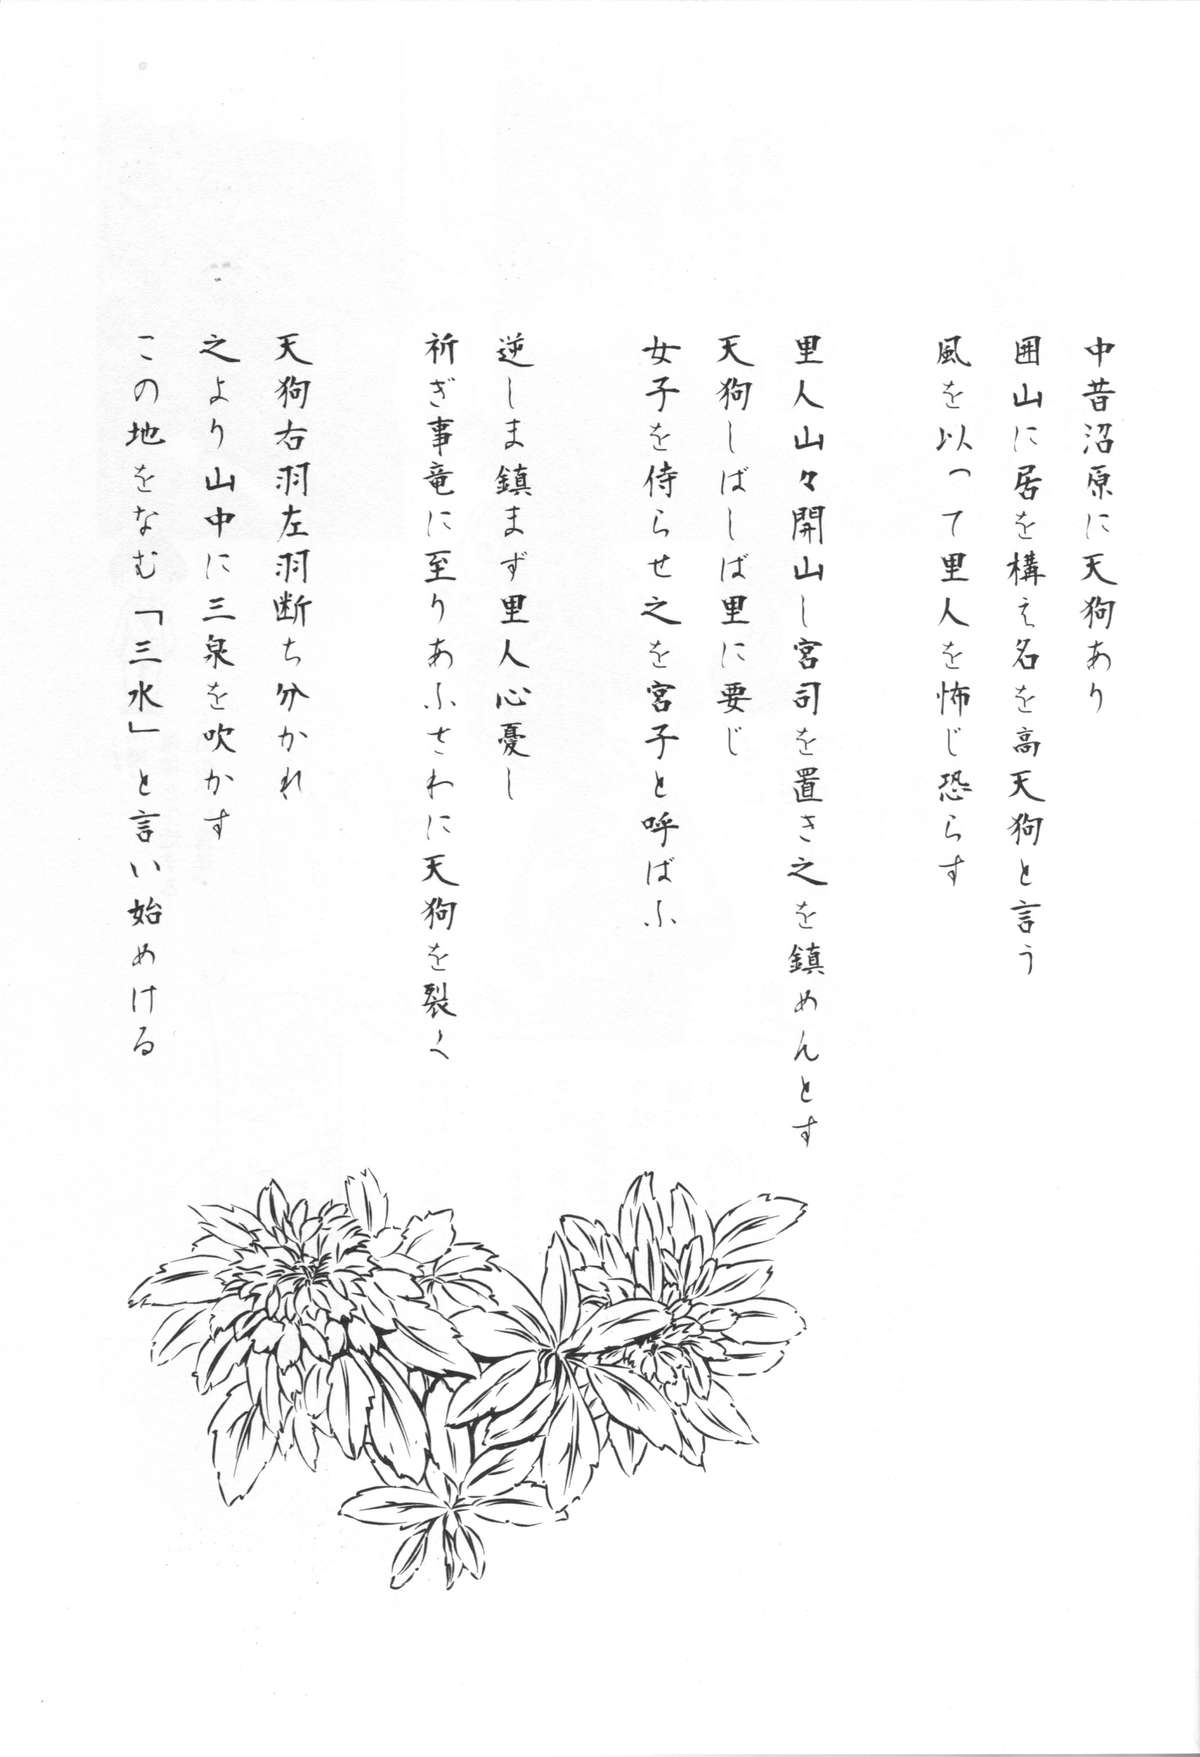 中昔沼原に天狗あり
囲山に居を構え名を高天狗と言う
風を以って里人を怖じ恐らす
里人山々開山し宮司を置き之を鎮めんとす
天狗しばしば里に要じ
女子を侍らせ之を宮子と呼ばふ
逆しま鎮まず里人心憂し
祈ぎ事竜に至りあふさわに天狗を裂く
天狗右羽左羽断ち分かれ
之より山中に三泉を吹かす
この地をなむ「三水」と言い始めける